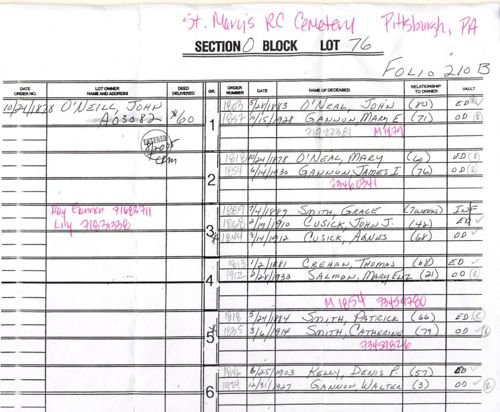 St. Mary's RC Cemetery Pittsburgh, PA
SECTION O BLOCK LOT 76
FOLIO 210 B
DATE ORDER NO. LOT OWNER NAME AND ADDRESS DEED DELIVERED GR. ORDER NUMBER DATE NAME OF DECEASED RELATIONSHIP TO OWNER VAULT
10/24/1878 O'NEILL, JOHN $60
A03082
1
1803 5/28/1883 O'NEAL, JOHN (80) ED
1857 4/15/1928 GANNON MARY E (71) OD
71922381 M1879
2
1818 10/24/1878 O'NEAL, MARY (60) ED
1854 4/14/1930 GANNON JAMES I (76) OD
73460341
Ray Gannon 71683711
Lily
3
1889 7/4/1889 SMITH, GRACE INF
1868 2/19/1910 CUSICK, JOHN J. (42) ED
1844 3/14/1912 CUSICK, AGNES (68) OD
4
1813 1/2/1881 CREHAN, THOMAS (68) ED
1912 2/28/1933 SALMON, MARY ELIZ (21) OD
M 1854 73459780
5
1818 3/24/1884 SMITH, PATRICK (66) ED
1835 3/6/1914 SMITH, CATHERINE (79) OD
73459826
6
1846 6/25/1903 KELLY, DENIS P. (57) ED
1924 12/31/1927 GANNON, WALTER (3) OD